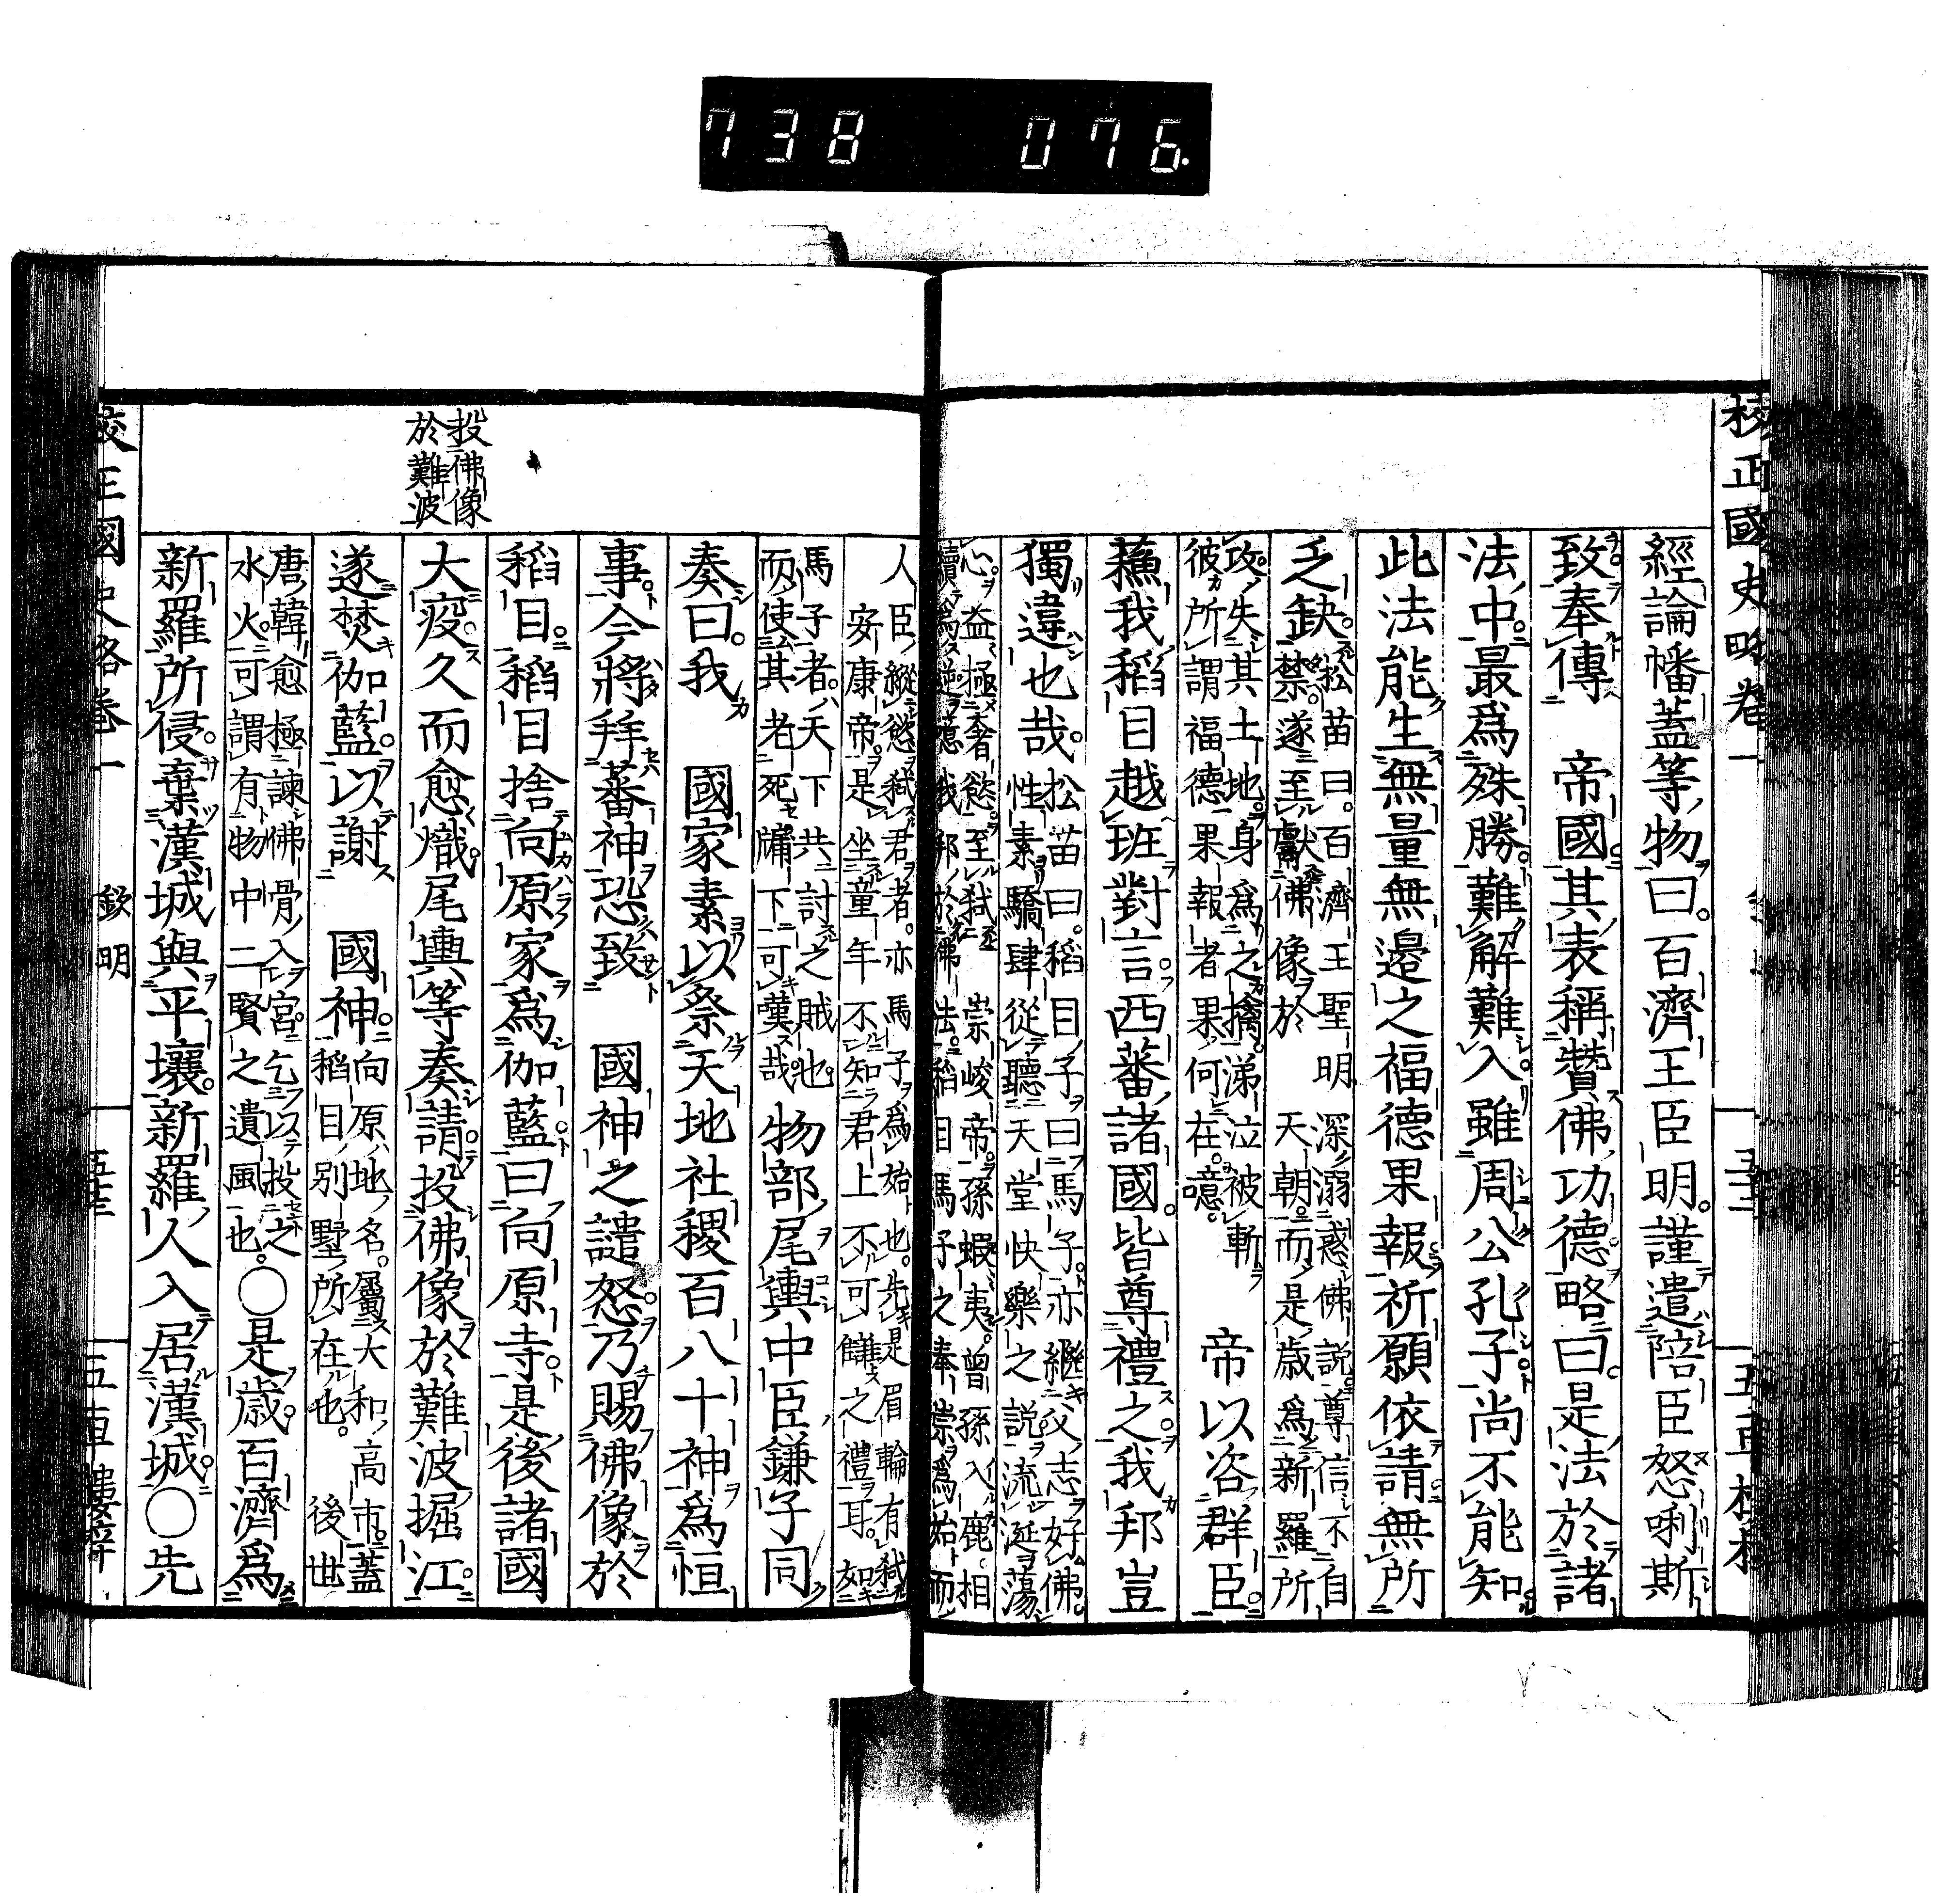 校正國史略卷一
經論幡蓋等物曰百濟王臣明謹遣陪臣怒唎斯
致奉傳　帝國其表稱贊佛功德略曰是法於諸
法中最爲殊勝難解難入雖周公孔子尚不能知
此法能生無量無邊之福德果報祈願依請無所
乏缺
松苗曰百濟王聖明深溺惑佛説尊信不自
禁遂至獻佛像於　天朝而是歳爲新羅所
攻失其土地身爲之擒涕泣被斬
彼所謂福德果報者果何在噫
帝以咨群臣
蘓我稻目越班對言西蕃諸國皆尊禮之我邦豈
獨違也哉
松苗曰稻目子曰馬子亦繼父志好佛
性素驕肆從聽天堂快樂之説流涎蕩
心益極奢慾至弑　崇峻帝孫蝦夷曾孫入鹿相
續爲逆噫我邦於佛法稻目馬子之奉崇爲始而
投佛像
於難波
人臣縱慾弑君者亦馬子爲始也先是眉輪有弑
安康帝是坐童年不知君上不可讎之禮耳如
馬子者天下共討之賊也
而使其老死牖下可嘆哉
物部尾輿中臣鎌子同
奏曰我　國家素以祭天地社稷百八十神爲恒
事今將拜蕃神恐致　國神之譴怒乃賜佛像於
稻目稻目捨向原家爲伽藍曰向原寺是後諸國
大疫久而愈熾尾輿等奏請投佛像於難波掘江
遂焚伽藍以謝　國神
向原地名属大和高市蓋
稻目別墅所在也　後世
唐韓愈極諫佛骨入宮乞以投之
水火可謂有物中二賢之遺風也
○是歳百濟爲
新羅所侵棄漢城與平壤新羅人入居漢城○先
校正國史略卷一　欽明　五十三　五車樓梓
738 076